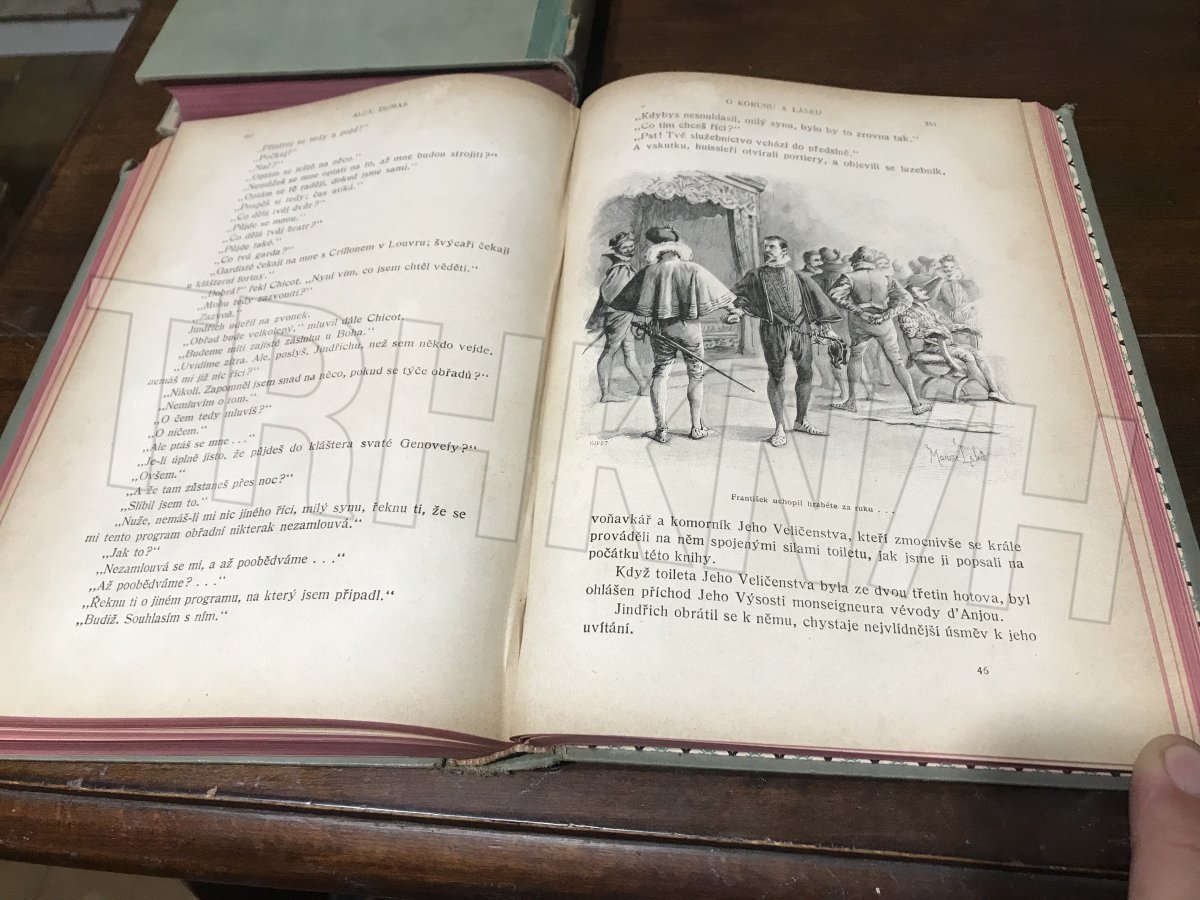 ALEX. DUMAS
„Přistroj se tedy a pojď!“
„Počkej!“
„Nač?“
„Optám se ještě na něco.“
„Nemůžeš se mne optati na to, až mne budou strojiti?“
„Optám se tě raději, dokud jsme sami.“
„Pospěš si tedy; čas utíká.“
„Co dělá tvůj dvůr?“
„Půjde se mnou.“
„Co dělá tvůj bratr?“
„Půjde také.“
„Co tvá garda?“
„Gardisté čekají na mne s Crillonem v Louvru; švýcaři čekají
u klášterní fortny.“
„Dobrá!“ řekl Chicot. „Nyní vím, co jsem chtěl věděti.“
„Mohu tedy zazvoniti?“
„Zazvoň.“
Jindřich udeřil na zvonek.
„Obřad bude velkolepý,“ mluvil dále Chicot.
„Budeme míti zajisté zásluhu u Boha.“
„Uvidíme zítra. Ale, poslyš, Jindřichu, než sem někdo vejde,
nemáš mi již nic říci?“
„Nikoli. Zapomněl jsem snad na něco, pokud se týče obřadů?“
„Nemluvím o tom.“
„O čem tedy mluvíš?“
„O ničem.“
„Ale ptáš se mne . . .“
„Je-li úplně jisto, že půjdeš do kláštera svaté Genovefy?“
„Ovšem.“
„A že tam zůstaneš přes noc?“
„Slíbil jsem to.“
„Nuže, nemáš-li mi nic jiného říci, milý synu, řeknu ti, že se
mi tento program obřadní nikterak nezamlouvá.“
„Jak to?“
„Nezamlouvá se mi, a až poobědváme . . .“
„Až poobědváme? . . .“
„Řeknu ti o jiném programu, na který jsem připadl.“
„Budiž. Souhlasím s ním.“
O KORUNU A LÁSKU
361
„Kdybys nesouhlasil, milý synu, bylo by to zrovna tak.“
„Co tím chceš říci?“
„Pst! Tvé služebnictvo vchází do předsíně.“
A vskutku, huissieři otvírali portiery, a objevili se lazebník,
František uchopil hraběte za ruku . . .
voňavkář a komorník Jeho Veličenstva, kteří zmocnivše se krále
prováděli na něm spojenými silami toiletu, jak jsme ji popsali na
počátku této knihy.
Když toileta Jeho Veličenstva byla ze dvou třetin hotova, byl
ohlášen příchod Jeho Výsosti monseigneura vévody d'Anjou.
Jindřich obrátil se k němu, chystaje nejvlídnější úsměv k jeho
uvítání.
46
TRHKNIH